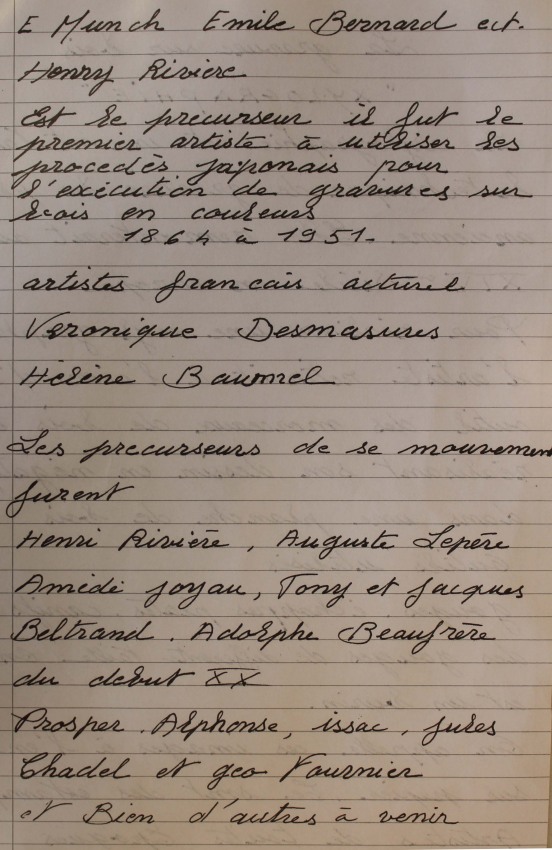 E Munch Emile Bernard ect.
Henry Riviere
Est le precurseur il fut le
premier artiste à utiliser les
procedès japonais pour
l'exécution de gravures sur
bois en couleurs
1864 à 1951-
artistes francais acturel
Veronique Desmasures
Hélène Baumel
Les precurseurs de se mouvement
furent
Henri Rivière, Auguste Lepère
Amédé Joyau, Tony et Jacques
Beltrand. Adolphe Beaufrère
du debut XX
Prosper. Alphonse, issac, jules
Chadel et geo Fournier
et Bien d'autres à venir